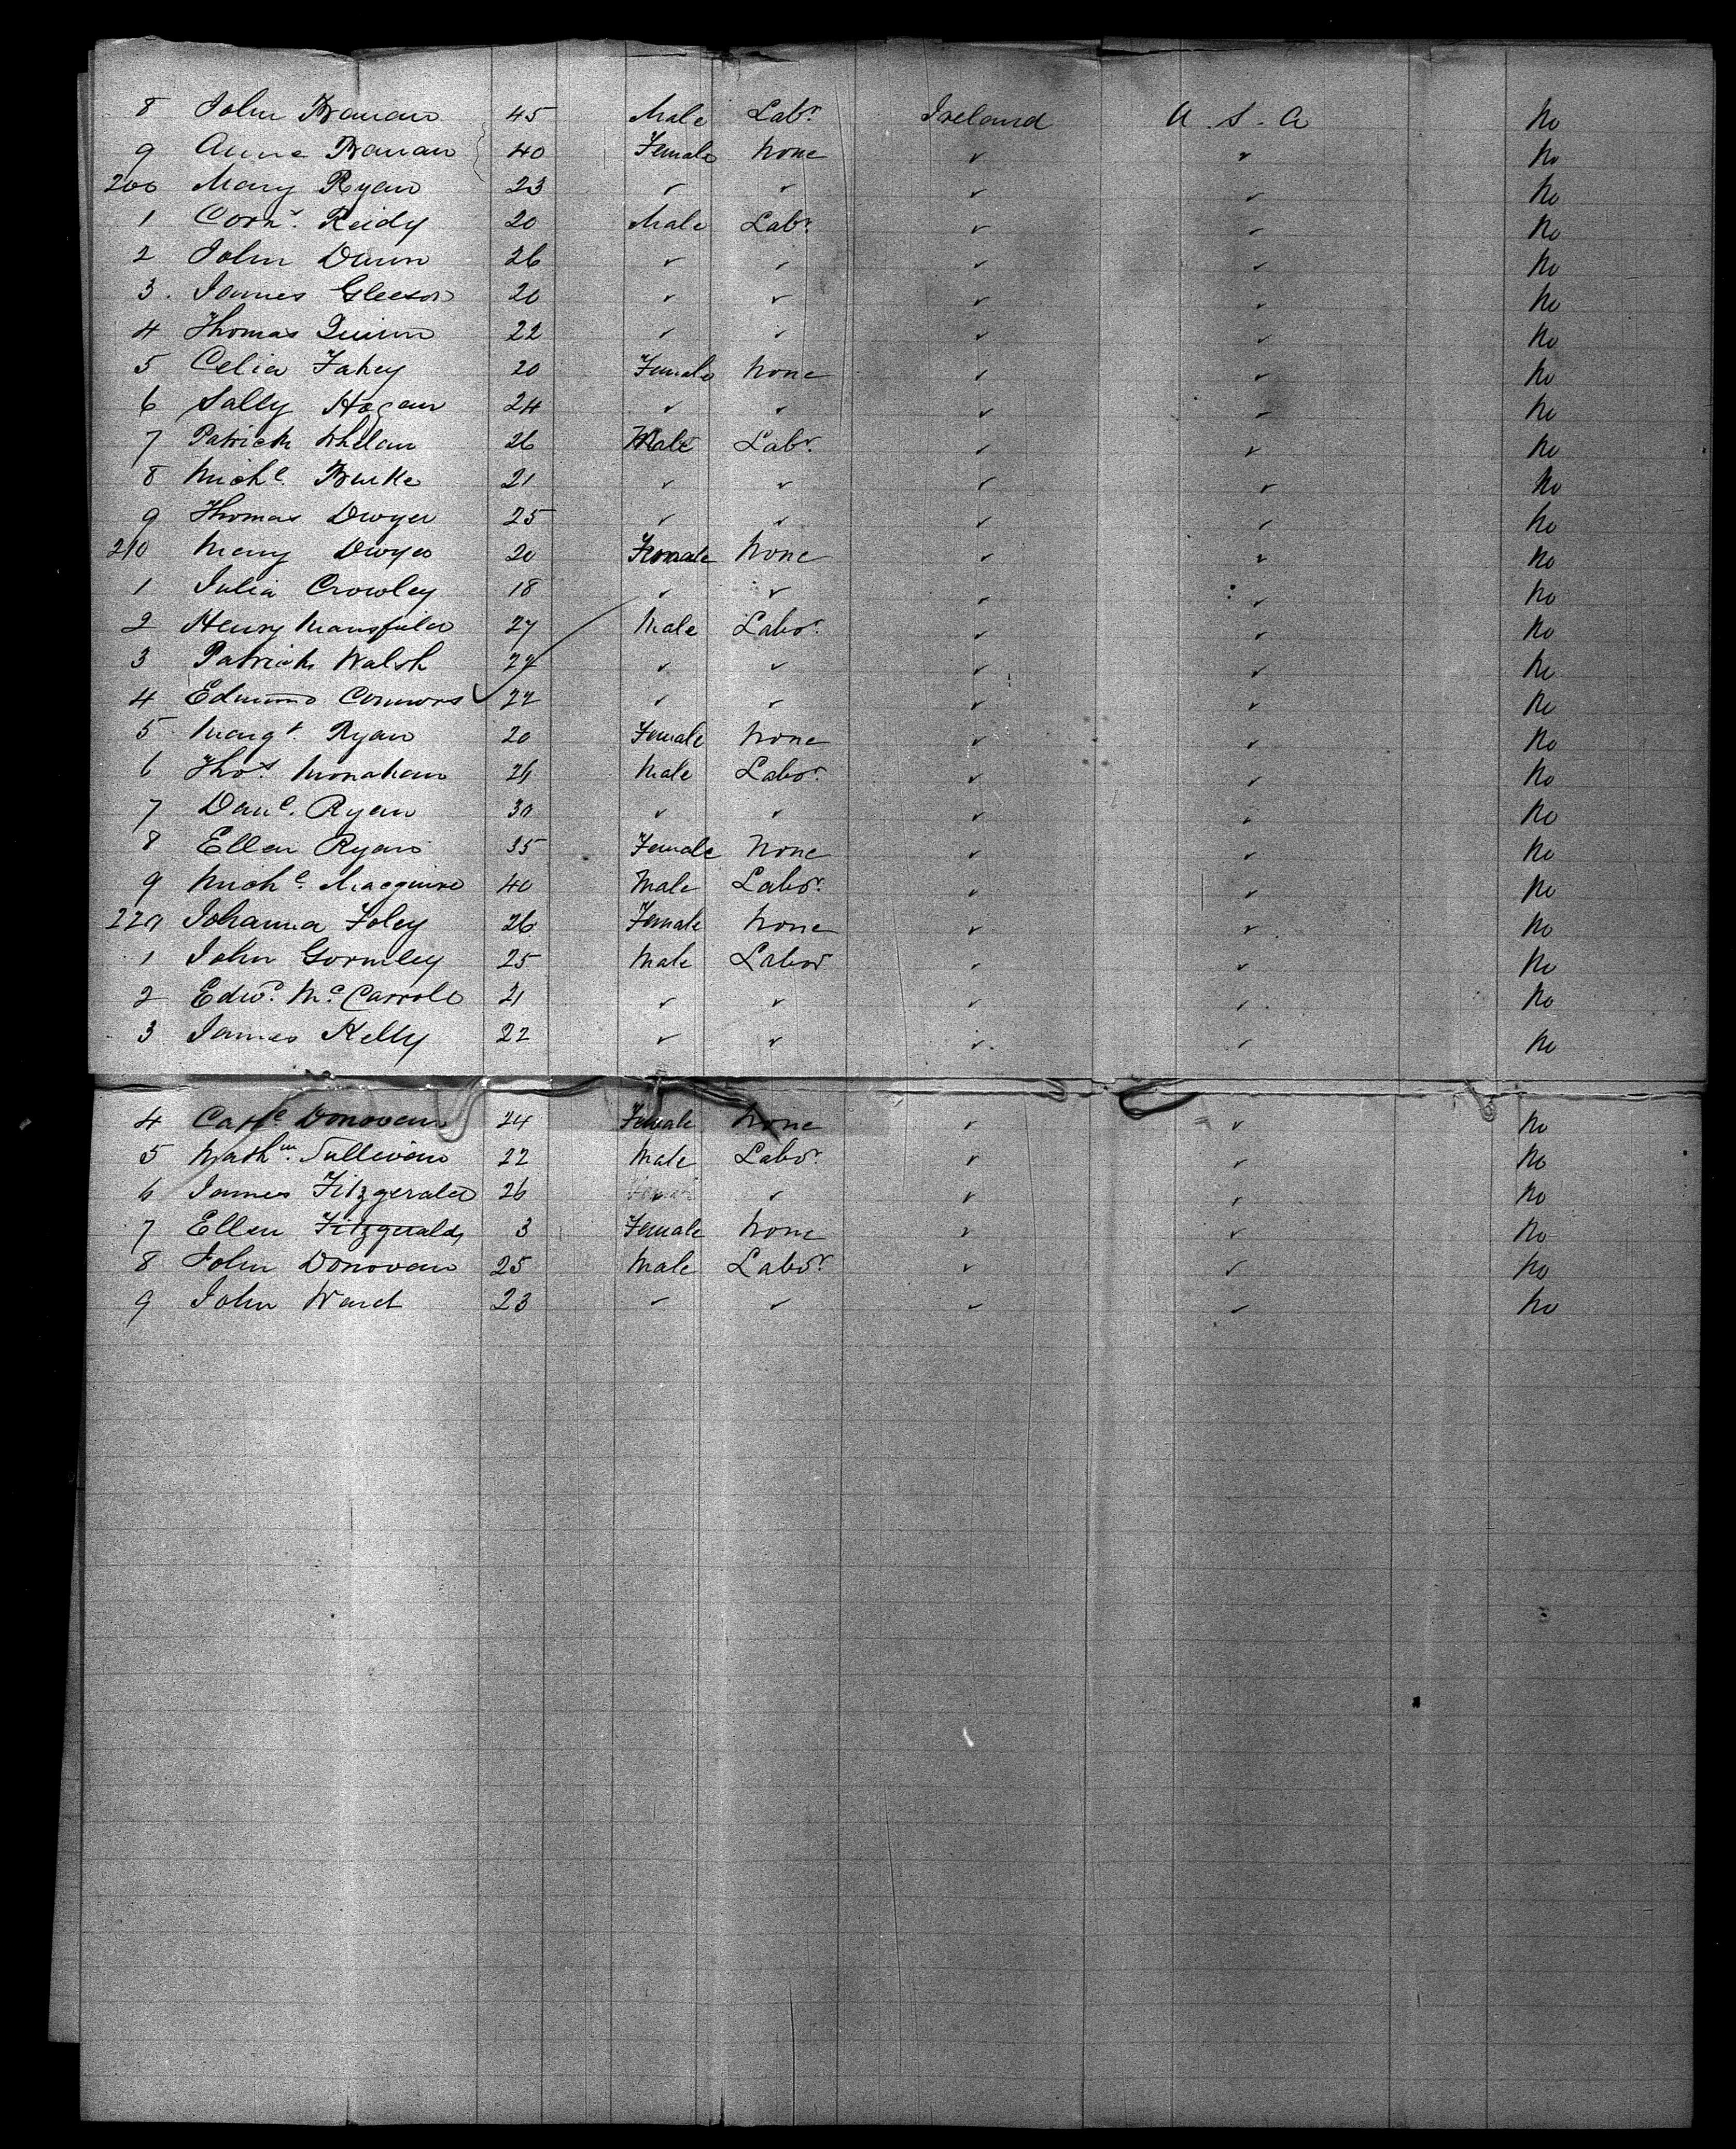 8 John Branan 45 Male Labr. Ireland U.S.A No
9 Anne Branan 40 Female None ✓ ✓ No
200 Mary Ryan 23 ✓ ✓ ✓ ✓ No
1 Corns. Reidy 20 Male Labr. ✓ ✓ No
2 John Dunn 26 ✓ ✓ ✓ ✓ No
3. James Gleeson 20 ✓ ✓ ✓ ✓ No
4 Thomas Quinn 22 ✓ ✓ ✓ ✓ No
5 Celia Fahey 20 Female None ✓ ✓ No
6 Sally Hogan 24 ✓ ✓ ✓ ✓ No
7 Patrick Whelan 26 Male Labr. ✓ ✓ No
8 Michl. Burke 21 ✓ ✓ ✓ ✓ No
9 Thomas Dwyer 25 ✓ ✓ ✓ ✓ No
210 Mary Dwyer 20 Female None ✓ ✓ No
1 Julia Crowley 18 ✓ ✓ ✓ ✓ No
2 Henry Mansfield 27 Male Labor. ✓ ✓ No
3 Patrick Walsh ✓ ✓ ✓ ✓ No
4 Edmund Connors 22 ✓ ✓ ✓ ✓ No
5 Margt. Ryan 20 Female None ✓ ✓ No
6 Thos. Monahan Male Labor. ✓ ✓ No
7 Danl. Ryan 30 ✓ ✓ ✓ ✓ No
8 Ellen Ryan 35 Female None ✓ ✓ No
9 Michl. Macguire 40 Male Labor. ✓ ✓ No
220 Johanna Foley 26 Female None ✓ ✓ No
1 John Gormley 25 Male Labor ✓ ✓ No
2 Edwd. McCarrole 21 ✓ ✓ ✓ ✓ No
3 James Kelly 22 ✓ ✓ ✓ ✓ No
4 Donovan 24 Female None ✓ ✓ No
5 Sullivan 22 Male Labor. ✓ ✓ No
6 James Fitzgerald 26 ✓ ✓ ✓ ✓ No
7 Ellen Fitzgerald 3 Female None ✓ ✓ No
8 John Donovan 25 Male Labor ✓ ✓ No
9 John Ward 23 ✓ ✓ ✓ ✓ No